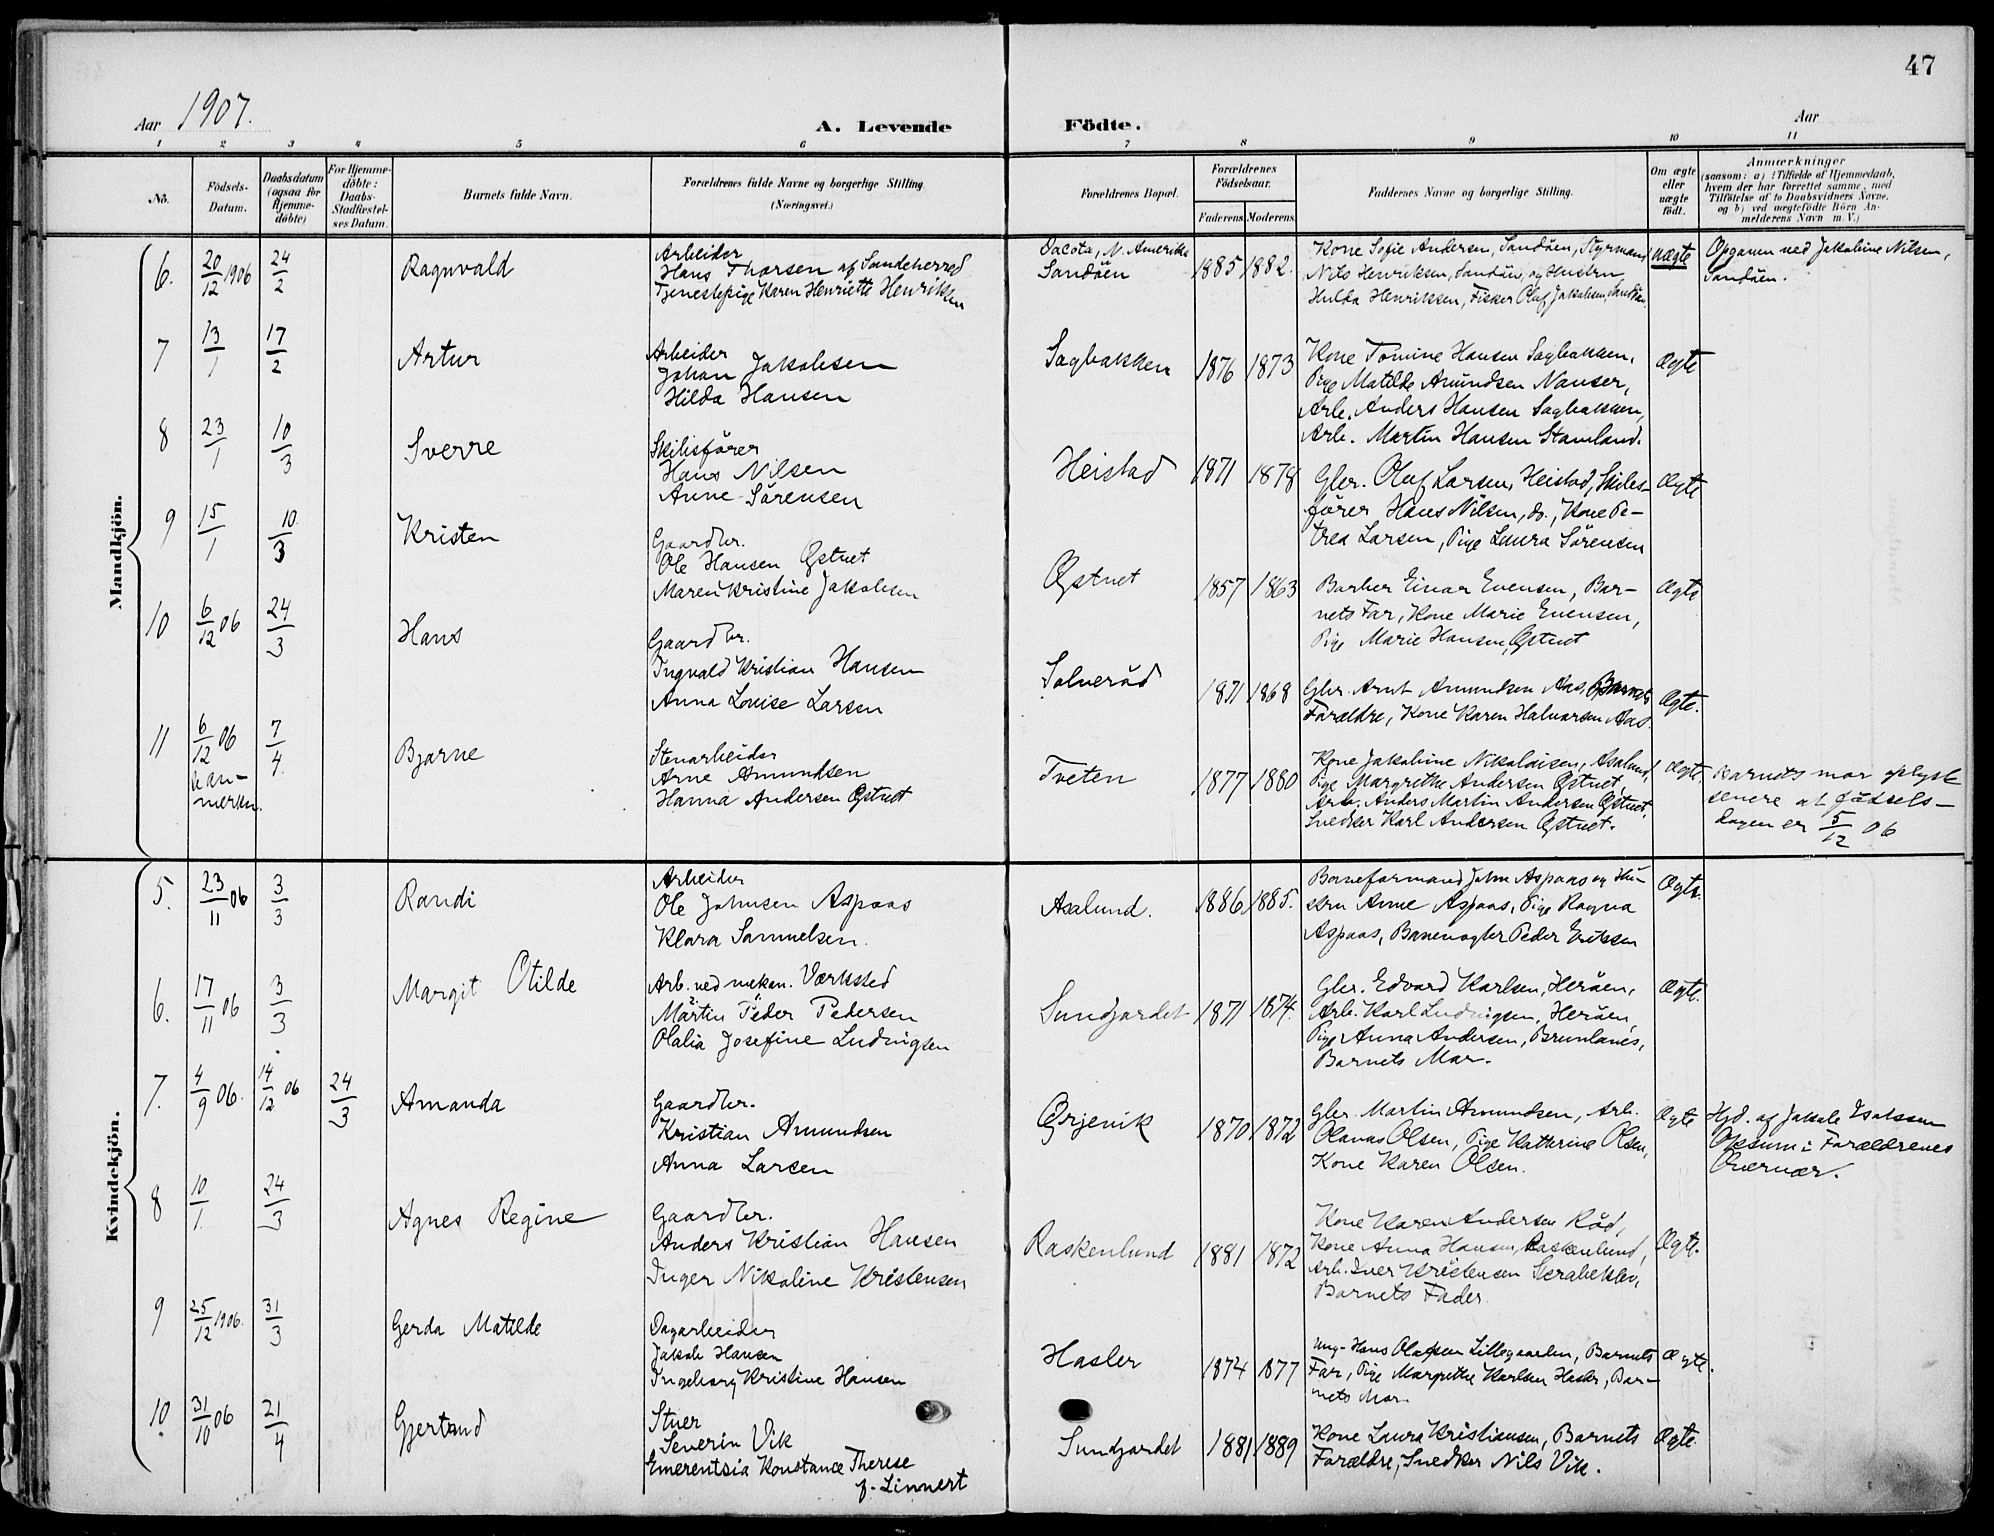 47
Aar 1907.
A. Levende Födte.
Aar
1 2 3 4 5 6 7 8 9 10 11
No.
Födsels-Datum.
Daabsdatum (ogsaa for Hjemme-döbte)
For Hjemme-döbte: Daabs-Stadfæstel-ses Datum.
Barnets fulde Navn.
Forældrenes fulde Navne og borgerlige Stilling. (Næringsvei.)
Forældrenes Bopæl.
Forældrenes Födselsaar.
Faderens. Moderens.
Faddernes Navne og borgerlige Stilling.
Om ægte eller uægte födt.
Anmærkninger
(saasom: a) i Tilfælde af Hjemmedaab, hvem der har forrettet samme, med Tilföielse af to Daabsvidners Navne, og b) ved uægtefödte Börn An-melderens Navn m. V.)
Mandkjön.
6. 20/12 1906 24/2 Ragnvald
Arbeider
Hans Thorsen af Sandeherred
Tjenestepige Karen Henriette Henriksen
Dacota, N. Amerika
Sandöen
1885 1882.
Kone Sofie Andersen, Sandöen, Styrmand
Nils Henriksen, Sandöen, og Hustru
Hulda Henriksen, Fisker Oluf Jakobsen, Sandöen.
uægte
Opgaven ved Jakobine Nilsen,
Sandöen.
7 13/1 17/2 Artur
Arbeider
Johan Jakobsen
Hilda Hansen
Sagbakken 1876 1873
Kone Tomine Hansen Sagbakken,
Pige Matilde Amundsen Nanser,
Arb. Anders Hansen Sagbakken,
Arb. Martin Hansen Stamland.
Ægte
8 23/1 10/3 Sverre
Skibsförer
Hans Nilsen
Anne Sörensen
Heistad 1871 1878
Gbr. Oluf Larsen, Heistad, Skibs-
förer Hans Nilsen, do., Kone Pe-
trea Larsen, Pige Laura Sörensen
Ægte
9 15/1 10/3 Kristen
Gaardbr.
Ole Hansen Østvet
Maren Kristine Jakobsen
Østvet 1857 1863
Barber Einar Evensen, Bar-
nets Far, Kone Marie Evensen,
Pige Marie Hansen, Østvet
Ægte
10 6/12 06 24/3 Hans
Gaardbr.
Ingvald Kristian Hansen
Anna Louise Larsen
Solveröd 1871 1868
Gbr. Arnt Amundsen Aas, Barnets
Forældre, Kone Karen Halvorsen Aas.
Ægte.
11 6/12 06 7/4 Bjarne
se an-
merkn.
Stenarbeider
Arne Amundsen
Hanna Andersen Østvet
Tveten 1877 1880
Kone Jakobine Nikolaisen, Asalund,
Pige Margrethe Andersen Østvet,
Arb. Anders Martin Andersen Østvet,
Snedker Karl Andersen Østvet.
Ægte.
Barnets mor oplyst
senere at fødsels-
dagen er 5/12 06
Kvindekjön.
5. 23/11 06 3/3 Randi
Arbeider
Ole Johnsen Aspaas
Klara Samuelsen.
Asalund. 1886 1885.
Baneformand John Aspaas og Hu-
stru Anne Aspaas, Pige Ragna
Aspaas, Banevogter Peder Eriksen
Ægte.
6. 17/11 06 3/3 Margit Otilde
Arb. ved mekan. Værksted
Martin Peder Pedersen
Olalia Josefine Ludvigsen
Sundjordet 1871 1874.
Gbr. Edvard Karlsen, Heröen,
Arb. Karl Ludvigsen, Heröen,
Pige Anna Andersen, Brunlanes,
Barnets Mor.
Ægte.
7. 4/9 06. 14/12 06 24/3 Amanda
Gaardbr.
Kristian Amundsen
Anna Larsen
Ørjevik 1870 1872
Gbr. Martin Amundsen, Arb.
Olanas Olsen, Pige Kathrine Olsen,
Kone Karen Olsen.
Ægte
Hjd. af Jakob Isaksen
i Forældrenes
Overvær.
8 10/1. 24/3 Agnes Regine
Gaardbr.
Anders Kristian Hansen
Inger Nikoline Kristensen
Raskenlund 1881 1872
Kone Karen Andersen Röd,
Kone Anna Hansen, Raskenlund,
Arb. Iver Kristensen Skrabeklev,
Barnets Fader.
Ægte.
9 25/12 1906. 31/3 Gerda Matilde
Dagarbeider
Jakob Hansen
Ingeborg Kristine Hansen
Hasler 1874 1877
Ung. Hans Olafsen Lillegaarden, Barnets
Far, Pige Margrethe Karlsen Hasler, Bar-
nets Mor.
Ægte.
10. 31/10 06 21/4 Gjertrud
Stuer
Severin Vik
Emerentsia Konstance Therese
f. Linnert
Sundjordet 1881 1889
Kone Laura Kristiansen, Barnets
Forældre, Snedker Nils Vik.
Ægte.